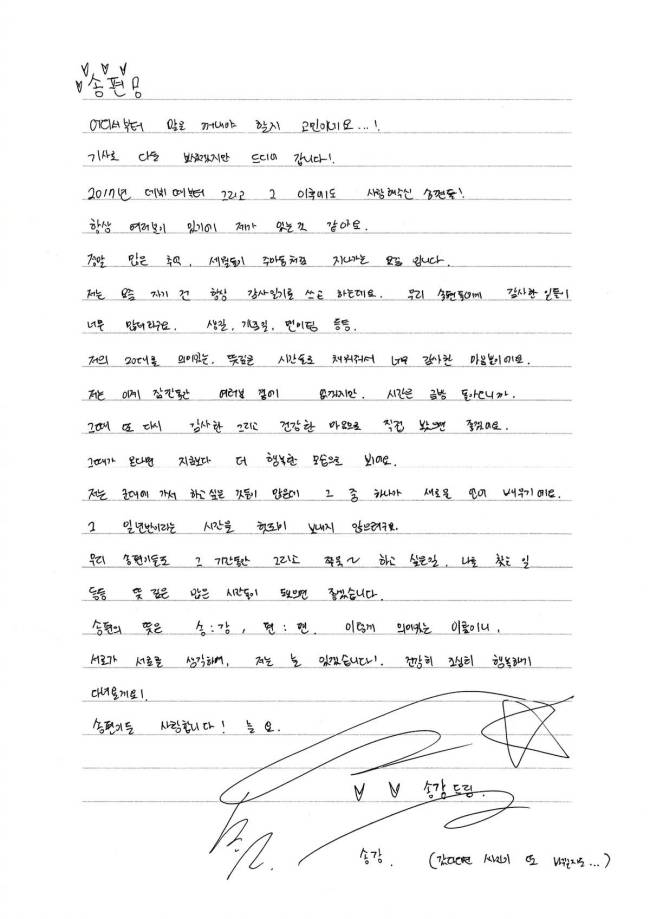 송편♡
어디서부터 말을 꺼내야 할지 고민이네요...!
기사로 다들 보셨겠지만 드디어 갑니다!
2017년 데뷔 때부터 그리고 그 이후에도 사랑해주신 송편들!
항상 여러분이 있기에 제가 있는 것 같아요.
정말 많은 추억, 세월들이 주마등처럼 지나가는 요즘 입니다.
저는 요즘 자기 전 항상 감사일기를 쓰고 하는데요. 우리 송편들에게 감사한 일들이
너무 많더라구요. 생일, 개콘길, 팬미팅 등등.
저의 20대를 의미있는, 뜻깊은 시간들로 채워줘서 너무 감사한 마음뿐이에요.
저는 이제 잠깐동안 여러분 곁에 없겠지만, 시간은 금방 돌아오니까.
그때 또 다시 감사한 그리고 건강한 마음으로 직접 봤으면 좋겠어요.
그때가 온다면 지금보다 더 행복한 모습으로 봐요.
저는 군대에 가서 하고 싶은 것들이 많은데 그 중 하나가 새로운 언어 배우기에요.
그 일년반이라는 시간을 헛되이 보내지 않으려구요.
우리 송편이들도 그 기간동안 그리고 쭈욱~ 하고 싶은일, 나를 찾는 일
등등 뜻 깊은 많은 시간들이 됐으면 좋겠습니다.
송편의 뜻은 송:강, 편:팬. 이렇게 의미있는 이름이니,
서로가 서로를 생각하며, 저는 늘 있겠습니다! 건강히 조심히 행복하게
다녀올게요!
송편이들 사랑합니다! 늘 요.
송강 드림.
송강. (갔다오면 싸인이 또 바뀔지도...)